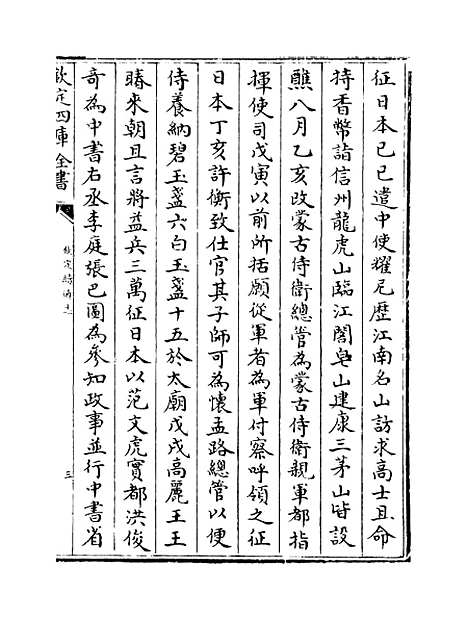 征日本己巳遣中使耀尼歴江南名山訪求高士且命
持香幣詣信州龍虎山臨江閤皂山建康三茅山皆設
醮八月乙亥改蒙古侍衛總管為蒙古侍衛親軍都指
揮使司戊寅以前所括願從軍者為軍付察呼領之征
日本丁亥許衡致仕官其子師可為懐孟路總管以便
侍養納碧玉盞六白玉盞十五於太廟戊戌高麗王王
賰來朝且言將益兵三萬征日本以范文虎實都洪俊
竒為中書右丞李庭張巴圖為參知政事並行中書省
欽定四庫全書
三